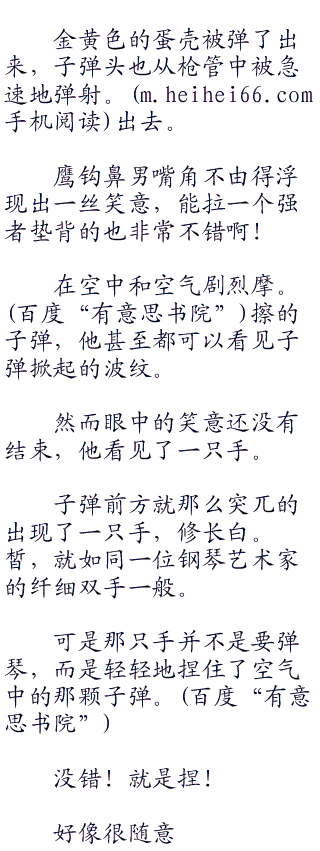 金黄色的蛋壳被弹了出
来，子弹头也从枪管中被急
速地弹射。(m.heihei66.com
手机阅读)出去。
鹰钩鼻男嘴角不由得浮
现出一丝笑意，能拉一个强
者垫背的也非常不错啊！
在空中和空气剧烈摩。
(百度“有意思书院”)擦的
子弹，他甚至都可以看见子
弹掀起的波纹。
然而眼中的笑意还没有
结束，他看见了一只手。
子弹前方就那么突兀的
出现了一只手，修长白。
皙，就如同一位钢琴艺术家
的纤细双手一般。
可是那只手并不是要弹
琴，而是轻轻地捏住了空气
中的那颗子弹。(百度“有意
思书院”)
没错！就是捏！
好像很随意